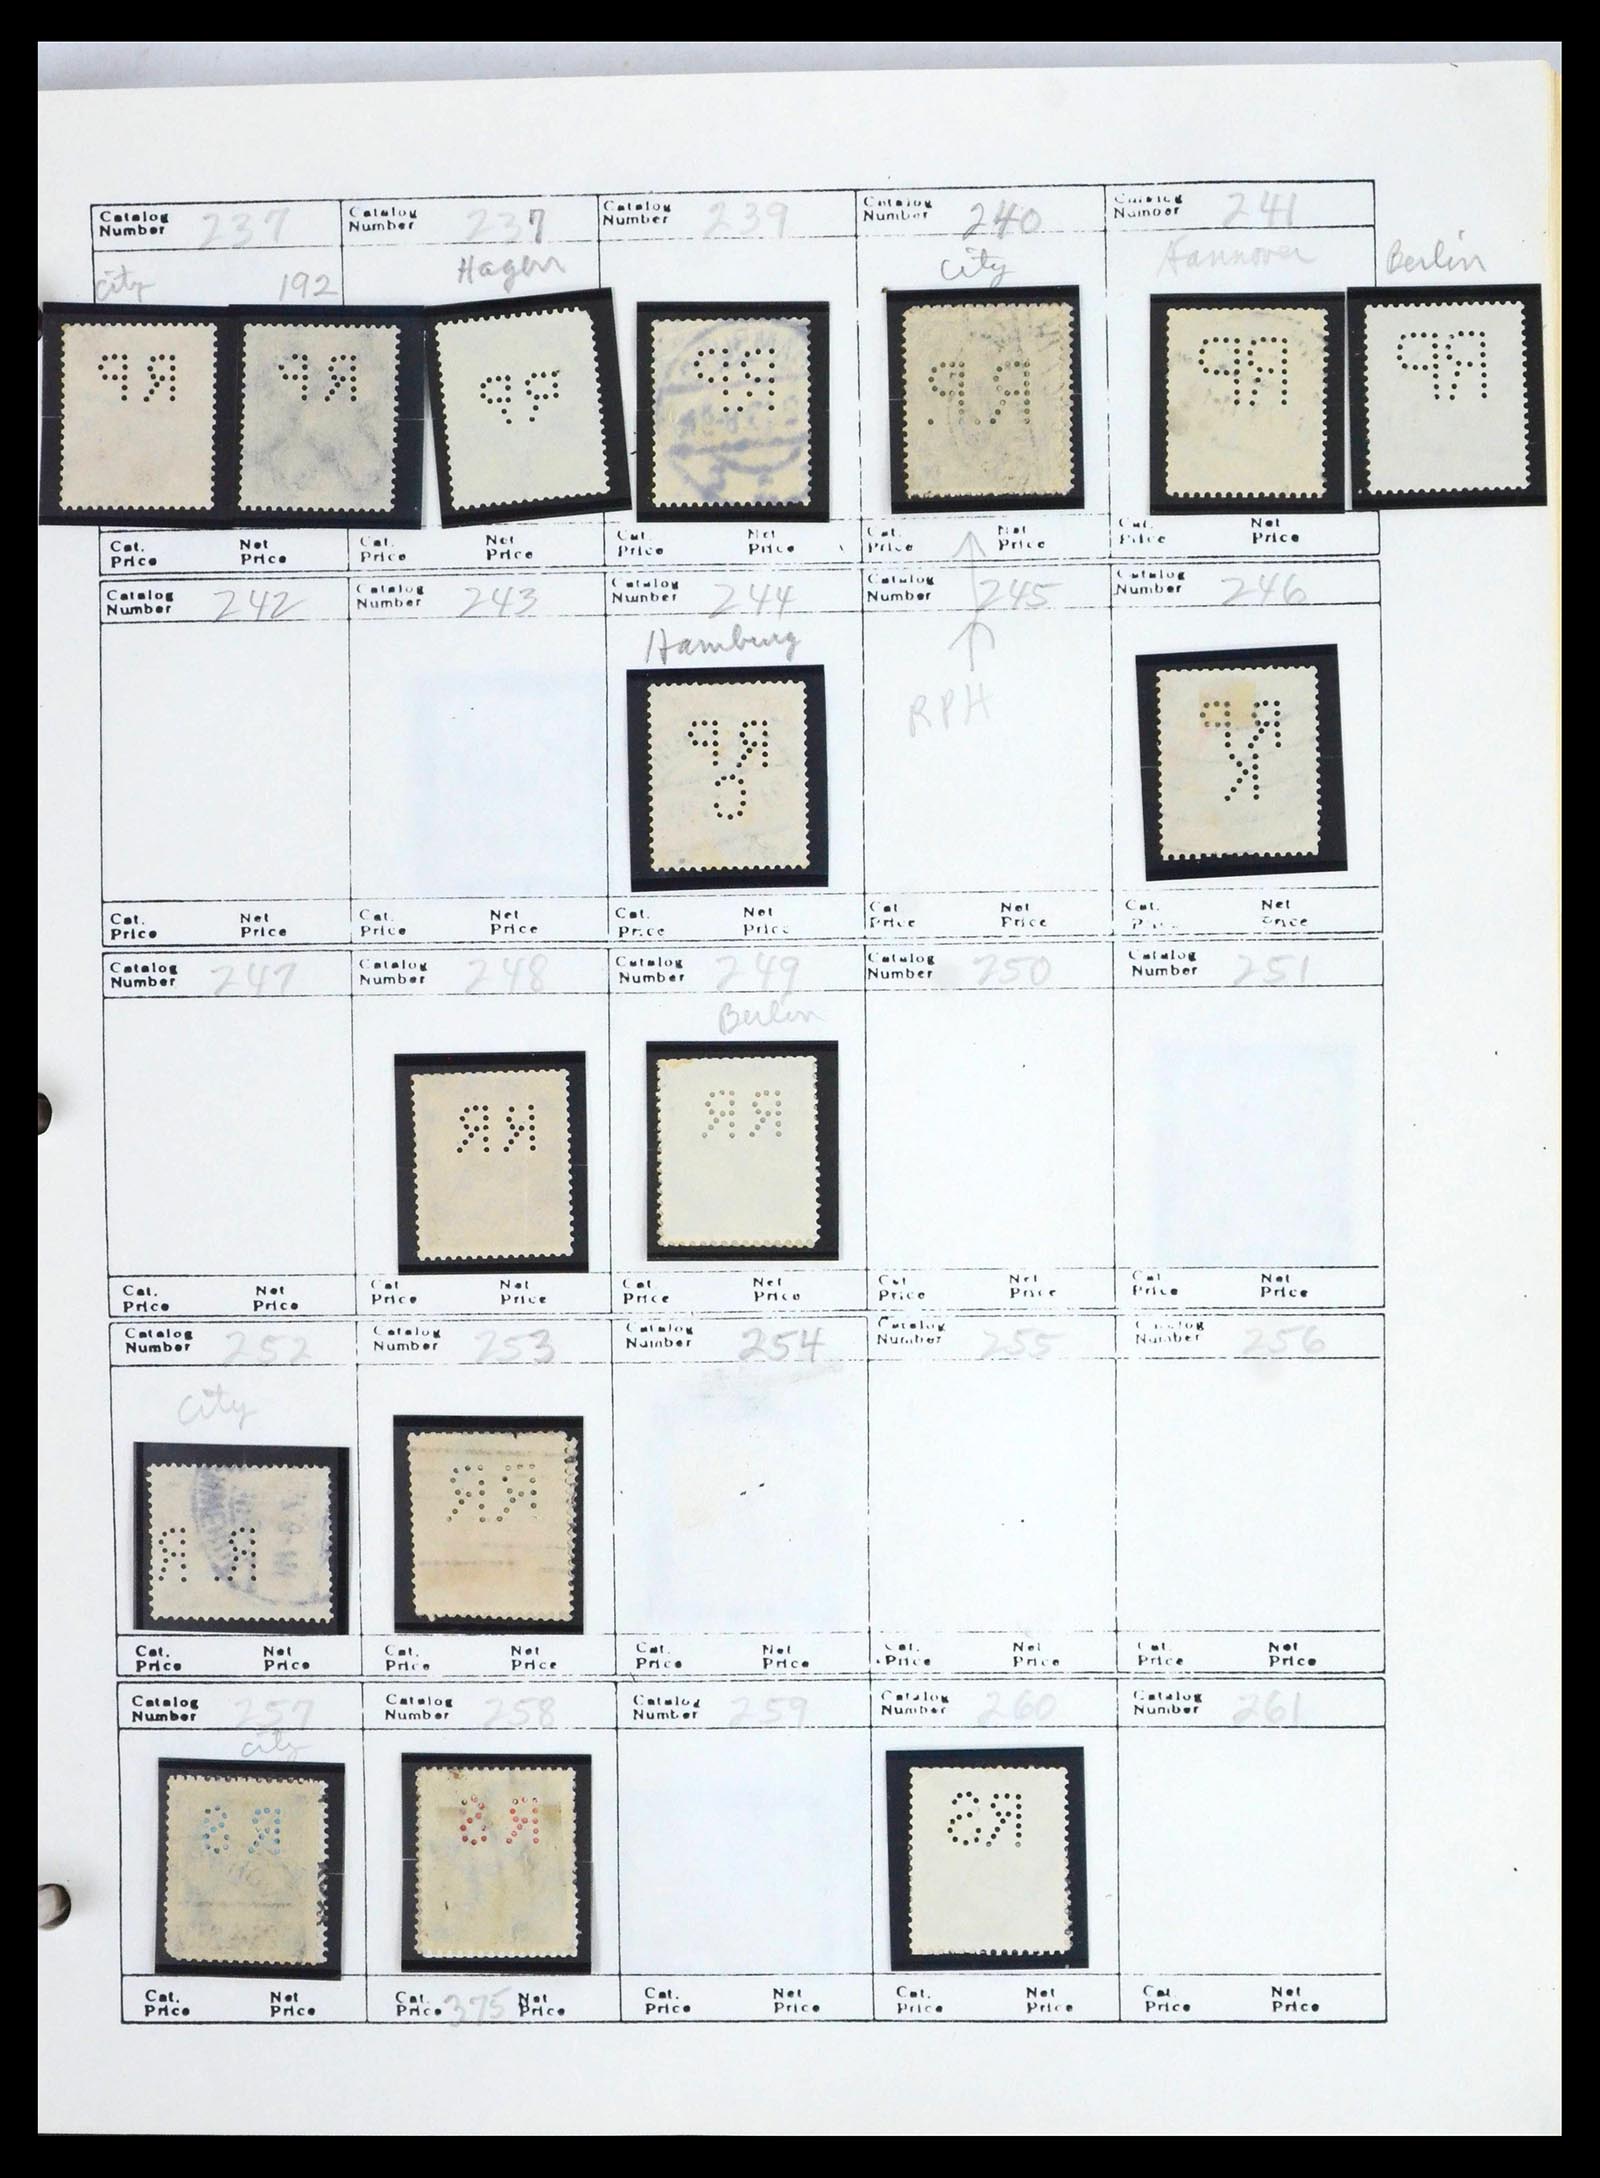 Catalog Number 237 Catalog Number 237 Catalog Number 239 Catalog Number 240 Catalog Number 241
city 192 Hagen city Hannover Berlin
Cat. Price Net Price Cat. Price Net Price Cat. Price Net Price Cat. Price Net Price Cat. Price Net Price
Catalog Number 242 Catalog Number 243 Catalog Number 244 Catalog Number 245 Catalog Number 246
Hamburg
RPH
Cat. Price Net Price Cat. Price Net Price Cat. Price Net Price Cat. Price Net Price Cat. Price Net Price
Catalog Number 247 Catalog Number 248 Catalog Number 249 Catalog Number 250 Catalog Number 251
Berlin
Cat. Price Net Price Cat. Price Net Price Cat. Price Net Price Cat. Price Net Price Cat. Price Net Price
Catalog Number 252 Catalog Number 253 Catalog Number 254 Catalog Number 255 Catalog Number 256
city
Cat. Price Net Price Cat. Price Net Price Cat. Price Net Price Cat. Price Net Price Cat. Price Net Price
Catalog Number 257 Catalog Number 258 Catalog Number 259 Catalog Number 260 Catalog Number 261
city
Cat. Price Net Price Cat. Price 375 Net Price Cat. Price Net Price Cat. Price Net Price Cat. Price Net Price